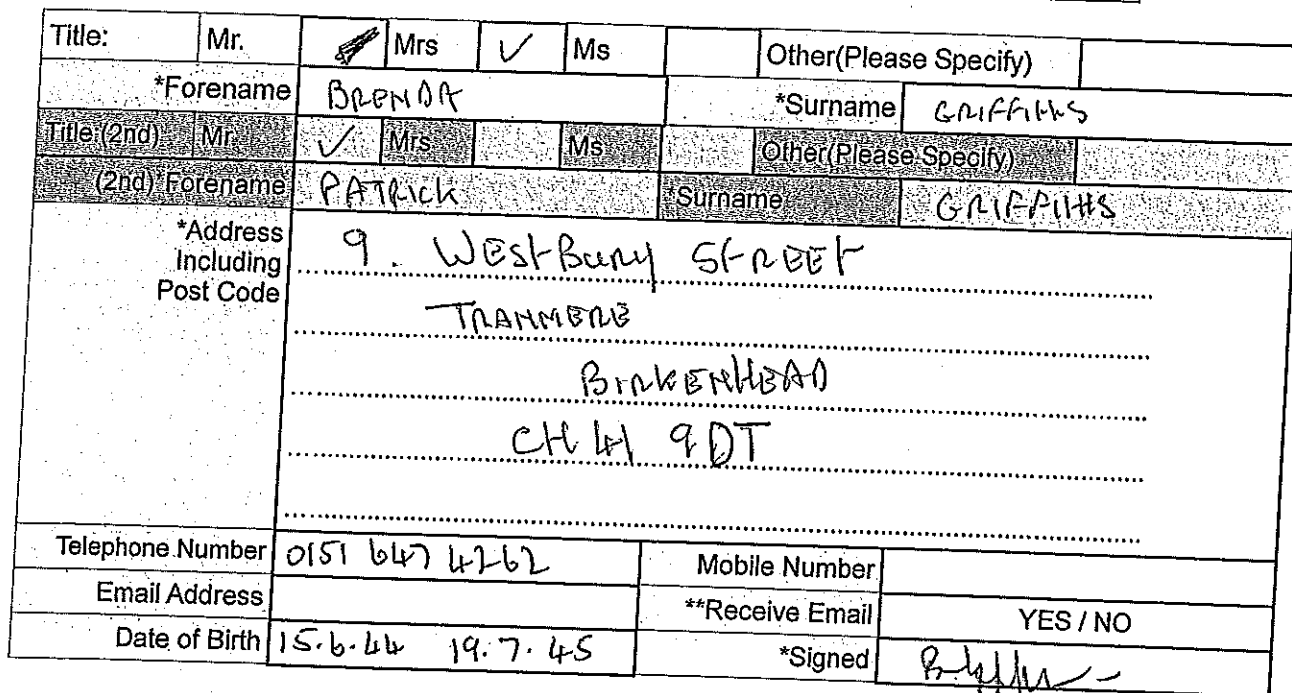 Title: Mr. Mrs ✓ Ms Other(Please Specify)
*Forename BRENDA *Surname GRIFFITHS
Title (2nd) Mr. ✓ Mrs Ms Other(Please Specify)
(2nd)*Forename PATRICK Surname GRIFFITHS
*Address Including Post Code
9. WEStBURY StREEt
TRANMERE
BIRKENHEAD
CH41 9DT
Telephone Number 0151 647 4262 Mobile Number
Email Address **Receive Email YES / NO
Date of Birth 15.6.44 19.7.45 *Signed